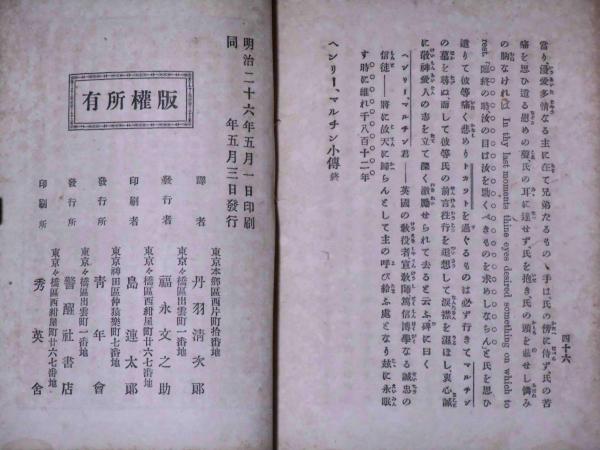 四十六
當り、優愛多情なる主に在て兄弟たるもの、手は、氏の傍に侍ず、氏の苦
痛を思ひ遣る慰めの聲氏の耳に達せず、氏を抱き氏の頭を載せし憐み
の胸なければ In thy last moments thine eyes desired something on which to
rest.「臨終の時汝の目は汝を助くべきものを求めしならん」と氏を思ひ
遣りて彼等痛く悲めりトカットを過ぐるものは必ず行きてマルチン
の墓を尋ぬ而して彼等氏の前言往行を追想して涙襟を濕ほし、衷心誠
に敬神愛人の志を立て深く激勵せられて去ると云ふ碑に曰く
ヘンリー、マルチン君――英國の敎役者宣敎師篤信博學なる誠忠の
信徒――將に故天に歸らんとして主の呼び給ふ處となり玆に永眠
す時に維れ千八百十二年
ヘンリー、マルチン小傳 終
明治二十六年五月一日印刷
同 年五月三日發行
版權所有
東京本鄕區西片町拾番地
譯者 丹羽淸次郞
東京々橋區出雲町一番地
發行者 福永文之助
東京々橋區西紺屋町廿六七番地
印刷者 島連太郞
東京神田區仲猿樂町七番地
發行所 靑年會
東京々橋區出雲町一番地
發行所 警醒社書店
東京々橋區西紺屋町廿六七番地
印刷所 秀英舍